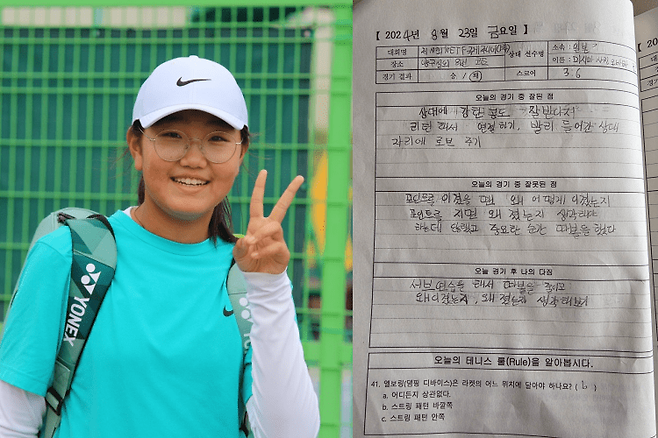 YONEX
【 2024년 8월 23일 금요일 】
대회명
상대 선수명
소속 : 일본
장소
양구
이름 :
경기 결과
승 / 패
스코어
3 6
오늘의 경기 중 잘된 점
상대에 강한 볼도 잘 받다서
리턴 해서 연결하기, 빨리 들어간 상대
자리에 로브 주기
오늘의 경기 중 잘못된 점
포인트를 이겼을 때면 왜 어떻게 이겼는지
포인트를 지면 왜 졌는지 생각해야
하는데 안했고 중요한 순간 더블을 했다
오늘 경기 후 나의 다짐
서브연습을 해서 더블을 줄이고
왜 이겼는지, 왜 졌는지 생각해보기
오늘의 테니스 룰(Rule)을 알아봅시다.
41. 엘보링(댐핑 디바이스)은 라켓의 어느 위치에 달아야 하나요? ( b )
a. 어디든지 상관없다.
b. 스트링 패턴 바깥쪽
c. 스트링 패턴 안쪽